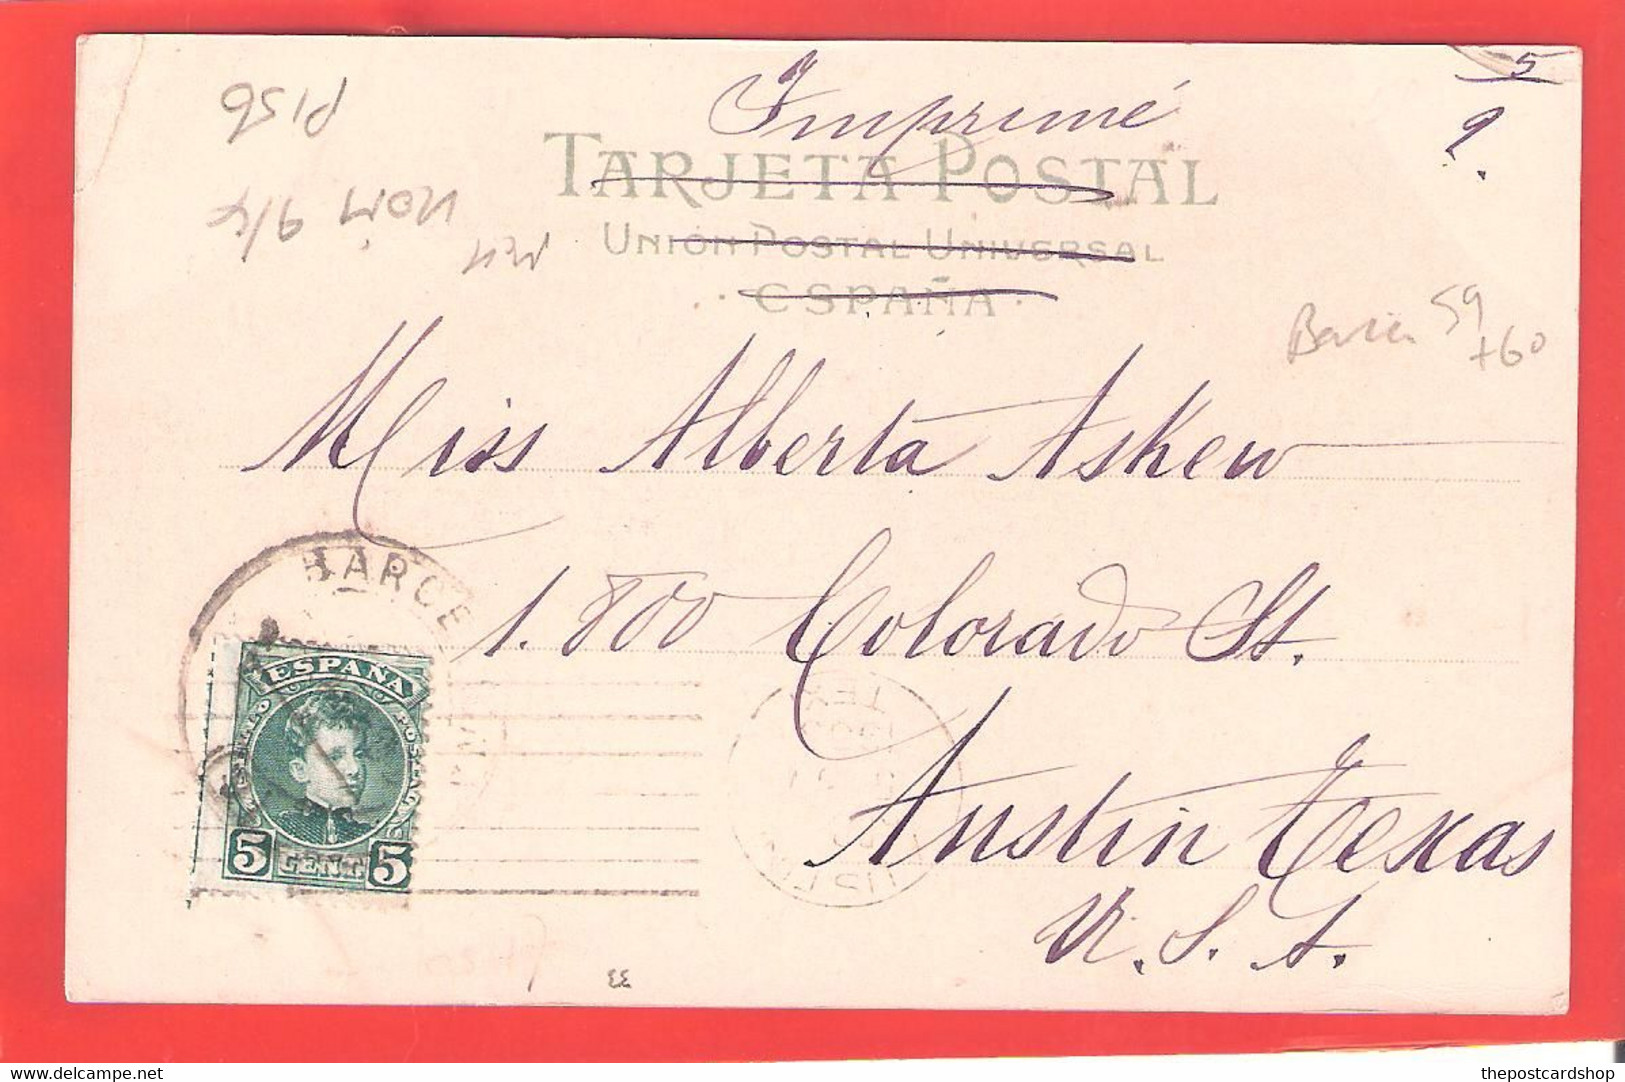 Imprimé
TARJETA POSTAL
UNIÓN POSTAL UNIVERSAL
· ESPAÑA ·
5
9.
P156
59
+60
Miss Alberta Askew
1.800 Colorado St.
Austin Texas
U. S. A.
BARCE
ESPAÑA
5 CENT. 5
TEX
33
delcampe.net
thepostcardshop